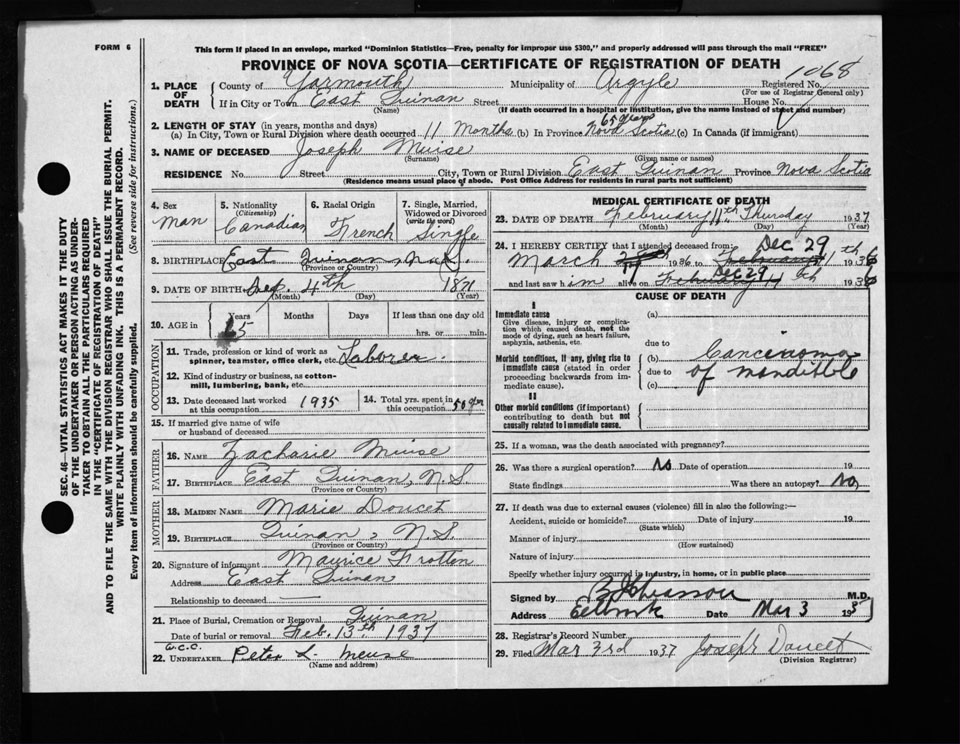 FORM 6
This form if placed in an envelope, marked "Dominion Statistics—Free, penalty for improper use $300," and properly addressed will pass through the mail "FREE"
PROVINCE OF NOVA SCOTIA—CERTIFICATE OF REGISTRATION OF DEATH
1068
1. PLACE OF DEATH
County of Yarmouth Municipality of Argyle Registered No.
(For use of Registrar General only)
If in City or Town East Quinan Street House No.
(Name) (If death occurred in a hospital or institution, give the name instead of street and number)
2. LENGTH OF STAY (in years, months and days)
(a) In City, Town or Rural Division where death occurred 11 Months (b) In Province 65 years Nova Scotia (c) In Canada (if immigrant)
3. NAME OF DECEASED Joseph Muise
(Surname) (Given name or names)
RESIDENCE No. Street City, Town or Rural Division East Quinan Province Nova Scotia
(Residence means usual place of abode. Post Office Address for residents in rural parts not sufficient)
4. Sex
man
5. Nationality
(Citizenship)
Canadian
6. Racial Origin
French
7. Single, Married, Widowed or Divorced
(write the word)
Single
8. BIRTHPLACE East Quinan, N.S.
(Province or Country)
9. DATE OF BIRTH 4th 1871
(Month) (Day) (Year)
10. AGE in
Years Months Days If less than one day old
65 hrs. or min.
OCCUPATION
11. Trade, profession or kind of work as spinner, teamster, office clerk, etc. Laborer.
12. Kind of industry or business, as cotton-mill, lumbering, bank, etc.
13. Date deceased last worked at this occupation 1935
14. Total yrs. spent in this occupation 50 yr
15. If married give name of wife or husband of deceased
FATHER
16. NAME Zacharie Muise
17. BIRTHPLACE East Quinan, N.S.
(Province or Country)
MOTHER
18. MAIDEN NAME Marie Doucet
19. BIRTHPLACE Quinan, N.S.
(Province or Country)
20. Signature of informant Maurice Frotten
Address East Quinan
Relationship to deceased
21. Place of Burial, Cremation or Removal Quinan
Date of burial or removal Feb. 13th 1937
22. UNDERTAKER Peter L Meuse
(Name and address)
MEDICAL CERTIFICATE OF DEATH
23. DATE OF DEATH February 11th Thursday 1937
(Month) (Day) (Year)
24. I HEREBY CERTIFY that I attended deceased from: Dec 29
March 1936 to February 11th 1936
Dec 29
and last saw him alive on February 193
CAUSE OF DEATH
I
Immediate cause
Give disease, injury or complication which caused death, not the mode of dying, such as heart failure, asphyxia, asthenia, etc.
(a)
due to
Morbid conditions, if any, giving rise to immediate cause (stated in order proceeding backwards from immediate cause).
(b) Carcinoma
due to of mandible
(c)
II
Other morbid conditions (if important) contributing to death but not causally related to immediate cause.
25. If a woman, was the death associated with pregnancy?
26. Was there a surgical operation? No Date of operation 19
State findings Was there an autopsy? No
27. If death was due to external causes (violence) fill in also the following:—
Accident, suicide or homicide? Date of injury 19
(State which)
Manner of injury
(How sustained)
Nature of injury
Specify whether injury occurred in industry, in home, or in public place
Signed by M.D.
Address Date Mar 3 193
28. Registrar's Record Number
29. Filed Mar 3rd 1937 Joseph Doucet
(Division Registrar)
SEC. 46—VITAL STATISTICS ACT MAKES IT THE DUTY
OF THE UNDERTAKER OR PERSON ACTING AS UNDER-
TAKER TO OBTAIN ALL THE PARTICULARS REQUIRED
IN THE "CERTIFICATE OF REGISTRATION OF DEATH"
AND TO FILE THE SAME WITH THE DIVISION REGISTRAR WHO SHALL ISSUE THE BURIAL PERMIT.
WRITE PLAINLY WITH UNFADING INK. THIS IS A PERMANENT RECORD.
Every item of information should be carefully supplied. (See reverse side for instructions.)